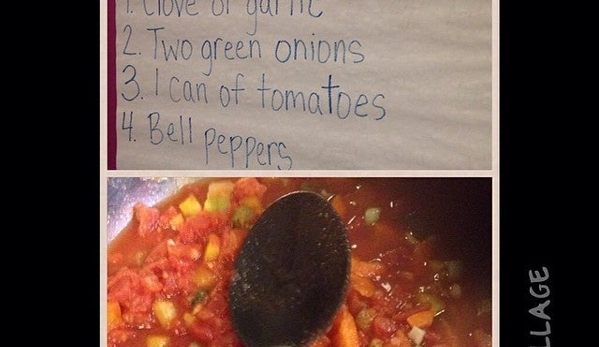 1. Clove of garlic
2. Two green onions
3. 1 can of tomatoes
4. Bell peppers
LLAGE